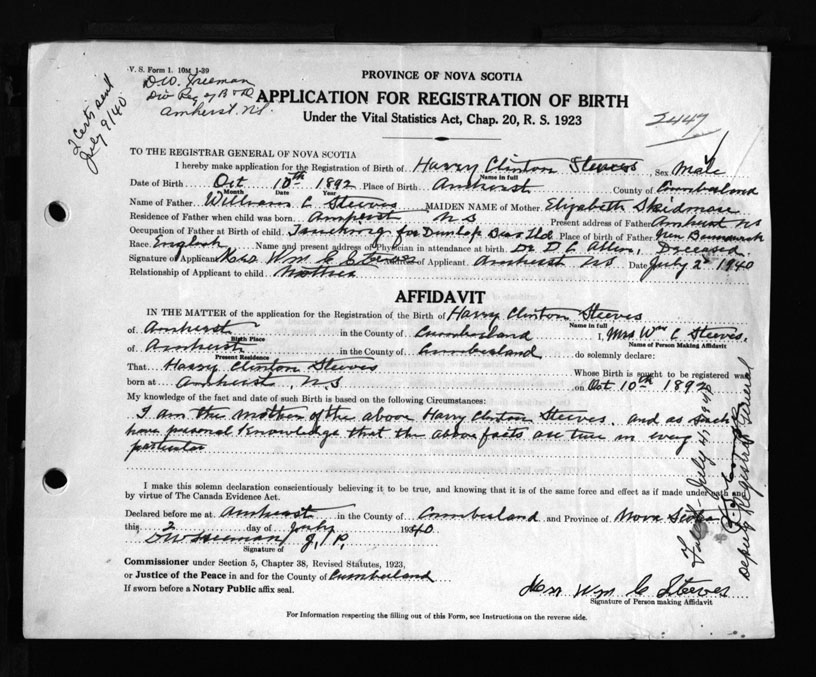 V. S. Form 1. 10M 1-39
D.W. Freeman
Div Reg of B & D
Amherst. N.S.
2 Certs sent
July 9/40
PROVINCE OF NOVA SCOTIA
APPLICATION FOR REGISTRATION OF BIRTH
Under the Vital Statistics Act, Chap. 20, R. S. 1923
2447
TO THE REGISTRAR GENERAL OF NOVA SCOTIA
I hereby make application for the Registration of Birth of Harry Clinton Steeves Sex Male
Name in full
Date of Birth Oct 10th 1892 Place of Birth Amherst County of Cumberland
Month Date Year
Name of Father William C Steeves MAIDEN NAME of Mother Elizabeth Skidmore
Residence of Father when child was born Amherst N S Present address of Father Amherst NS
Occupation of Father at Birth of child for Dunlap Bros Ltd Place of birth of Father New Brunswick
Race English Name and present address of Physician in attendance at birth Dr D C Allen, Deceased
Signature of Applicant Mrs Wm C Steeves Address of Applicant Amherst NS Date July 2 1940
Relationship of Applicant to child Mother
AFFIDAVIT
IN THE MATTER of the application for the Registration of the Birth of Harry Clinton Steeves
Name in full
of Amherst in the County of Cumberland I, Mrs Wm C Steeves,
Birth Place Name of Person Making Affidavit
of Amherst in the County of Cumberland do solemnly declare:
Present Residence
That Harry Clinton Steeves Whose Birth is sought to be registered was
born at Amherst, N.S on Oct 10th 1892
My knowledge of the fact and date of such Birth is based on the following Circumstances:
I am the mother of the above Harry Clinton Steeves. and as such
have personal knowledge that the above facts are true in every
particular
I make this solemn declaration conscientiously believing it to be true, and knowing that it is of the same force and effect as if made under oath and
by virtue of The Canada Evidence Act.
Declared before me at Amherst in the County of Cumberland and Province of Nova Scotia
this 2 day of July 1940
DW Freeman J.P.
Signature of
Commissioner under Section 5, Chapter 38, Revised Statutes, 1923,
or Justice of the Peace in and for the County of Cumberland
If sworn before a Notary Public affix seal.
Mrs Wm C Steeves
Signature of Person making Affidavit
For Information respecting the filling out of this Form, see Instructions on the reverse side.
Filed July 4, 1940
Deputy Registrar General